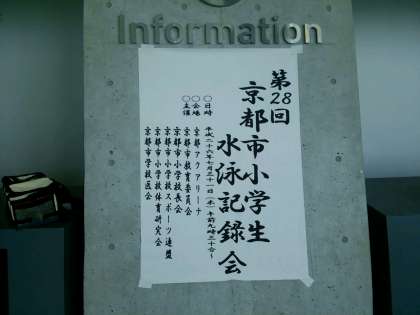 Information
第28回
京都市小学生
水泳記録会
○日時 平成二十六年七月三十一日(木)午前九時三十分~
○会場 京都アクアリーナ
○主催 京都市教育委員会
京都市小学校長会
京都市小学校スポーツ連盟
京都市小学校体育研究会
京都市学校医会